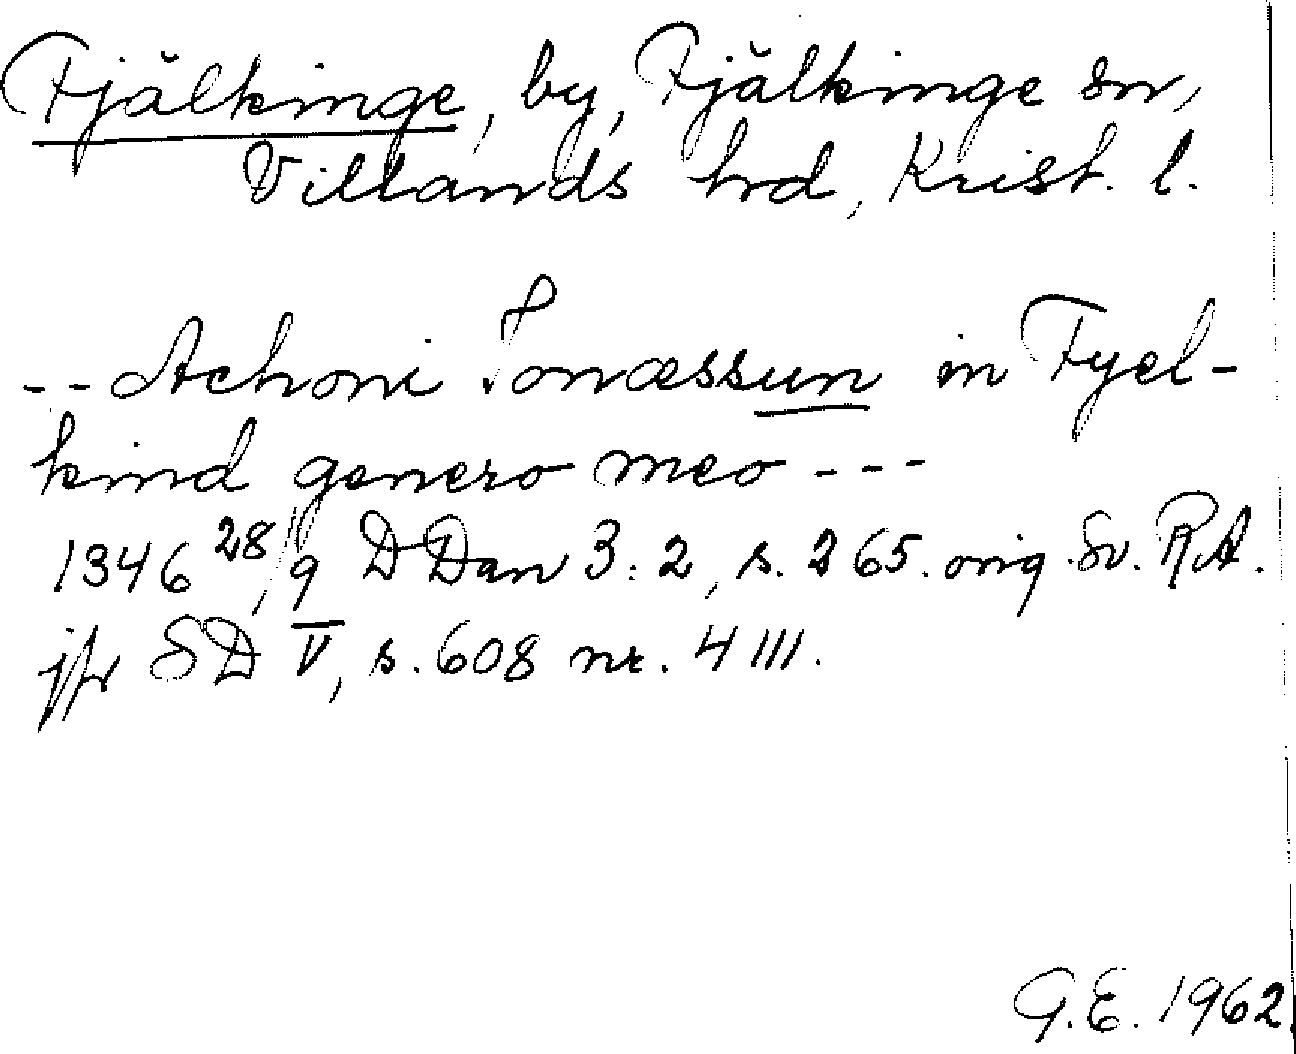 Fjälkinge, by, Fjälkinge sn,
Villands hrd, Krist. l.
-- Achoni Tonæssun in Fyel-
kind genero meo ---
1346 28/9 DDan 3:2, s. 265. orig. Sv. RA.
jfr SD V, s. 608 nr. 4111.
G.E. 1962.